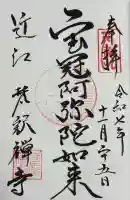 奉拝
令和七年
十一月二十五日
宝冠阿弥陀如来
近江
禅寺